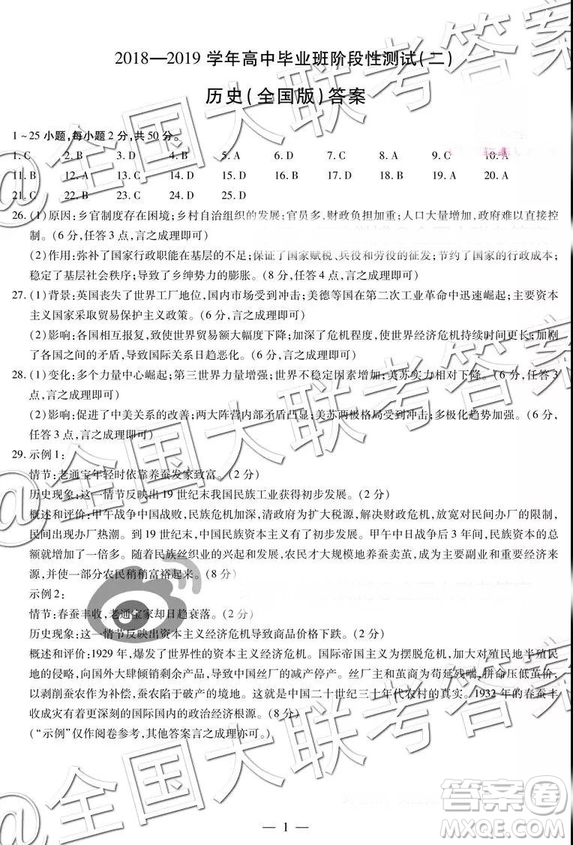 2018—2019 学年高中毕业班阶段性测试(二)
历史(全国版)答案
1~25 小题,每小题 2 分,共 50 分。
1. C 2. B 3. D 4. D 5. C 6. D 7. B 8. C 9. A 10. A
11. B 12. B 13. C 14. A 15. C 16. C 17. D 18. D 19. B 20. A
21. C 22. D 23. C 24. D 25. D
26. (1)原因:乡官制度存在困境;乡村自治组织的发展;官员多,财政负担加重;人口大量增加,政府难以直接控
制。(6 分,任答 3 点,言之成理即可)
(2)作用:弥补了国家行政职能在基层的不足;保证了国家赋税、兵役和劳役的征发;节约了国家的行政成本;
稳定了基层社会秩序;导致了乡绅势力的膨胀。(6 分,任答 3 点,言之成理即可)
27. (1)背景:英国丧失了世界工厂地位,国内市场受到冲击;美德等国在第二次工业革命中迅速崛起;主要资本
主义国家采取贸易保护主义政策。(6 分)
(2)影响:各国相互报复,致使贸易额大幅度下降;加深了危机程度,使世界经济危机持续时间更长;引起国家
之间的矛盾,导致国际关系日趋恶化。(6 分)
28. (1)变化:多个力量中心崛起;第三世界力量增强;世界不稳定因素增加;美苏实力相对下降。(6 分,任答 3
点,言之成理即可)
(2)影响:促进了中美关系的改善;两大阵营内部矛盾凸显;美苏两极格局受到冲击;多极化趋势增强。(6 分,
任答 3 点,言之成理即可)
29. 示例 1:
情节:老通宝年轻时依靠养蚕发家致富。(2 分)
历史现象:这一情节反映出 19 世纪末我国民族工业获得初步发展。(2 分)
概述和评价:甲午战争中国战败,民族危机加剧,清政府为扩大税源,放宽对民间办厂的限制,民间出现
办厂热潮。到 19 世纪末,中国民族资本主义有了初步的发展。甲午中日战争后,民族资本的总
额就增加了一倍多。随着民族丝织业的兴起和发展,农民养蚕卖茧成为农业副业和重要经济来
源,一部分农民稍稍富裕起来。(8 分)
示例 2:
情节:春蚕丰收,老通宝家却日趋衰落。(2 分)
历史现象:这一情节反映出资本主义经济危机导致商品价格下跌。(2 分)
概述和评价:1929 年,爆发了世界性的经济危机。国际帝国主义为摆脱危机,加紧了对殖民地半殖民
地的侵略,向国外大量倾销剩余产品,导致中国丝厂的减产停产。丝厂主和茧商为转嫁危机,拼命压低茧价,
使千百万养蚕、蚕农陷于破产的境地。这就是中国二十世纪三十年代农村的真实写照。1932 年的春蚕丰
收成灾有着更深刻的国际国内的政治经济根源。(8 分)
(“示例”仅作阅卷参考,其他答案,言之成理亦可。)
— 1 —
@全国大联考答案
答案圈
MXQE.COM